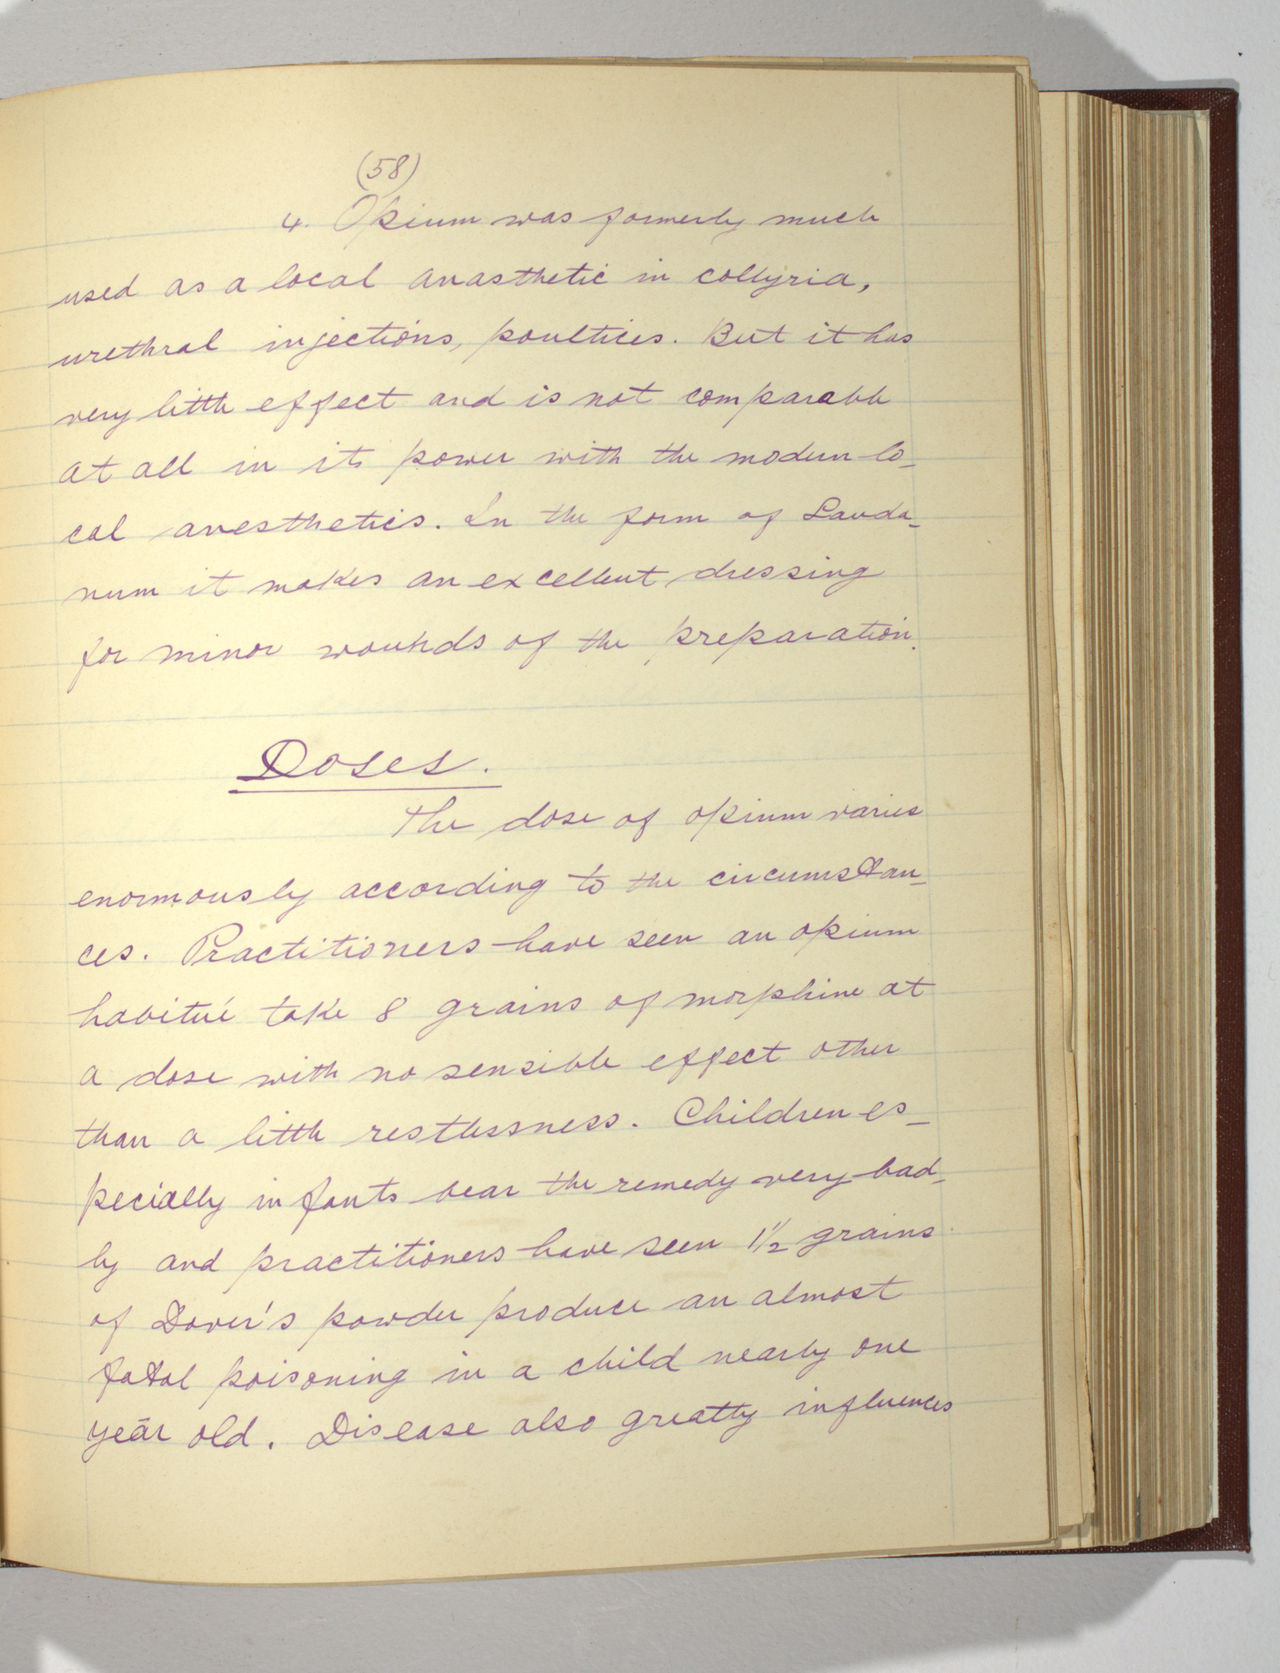 (58)
4. Opium was formerly much
used as a local anasthetic in collyria,
urethral injections, poultices. But it has
very little effect and is not comparable
at all in its power with the modern lo-
cal anesthetics. In the form of Lauda-
num it makes an excellent dressing
for minor wounds of the preparation.
Doses.
The dose of opium varies
enormously according to the circumstan-
ces. Practitioners have seen an opium
habitué take 8 grains of morphine at
a dose with no sensible effect other
than a little restlessness. Children es-
pecially infants bear the remedy very bad-
ly and practitioners have seen 1½ grains
of Dover's powder produce an almost
fatal poisoning in a child nearly one
year old. Disease also greatly influences